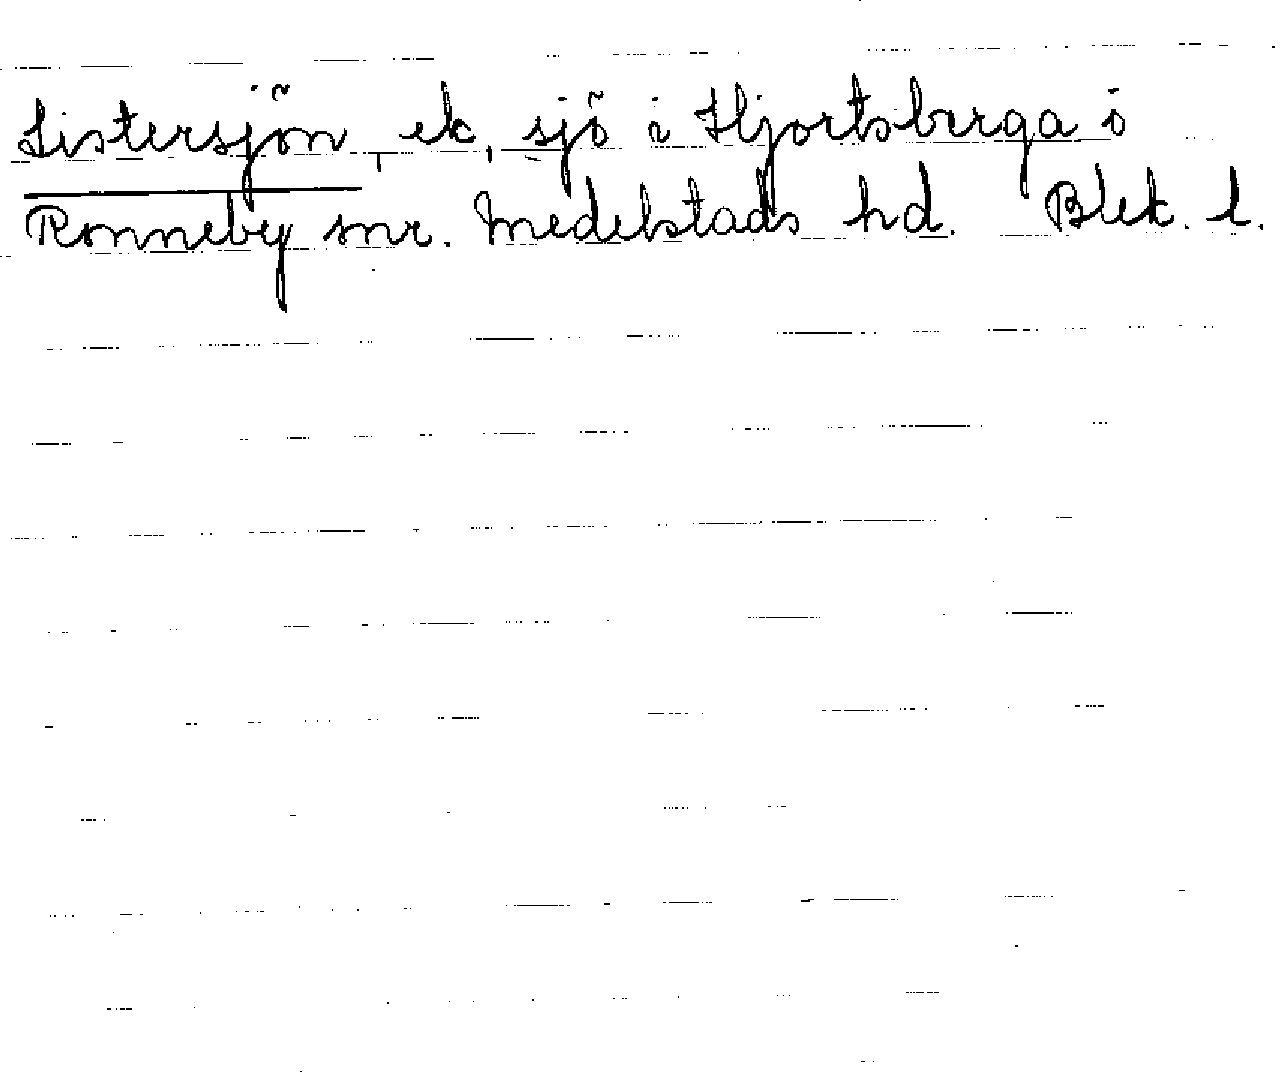 Listersjön, ek, sjö i Hjortsberga o
Ronneby snr. Medelstads hd. Blek. l.